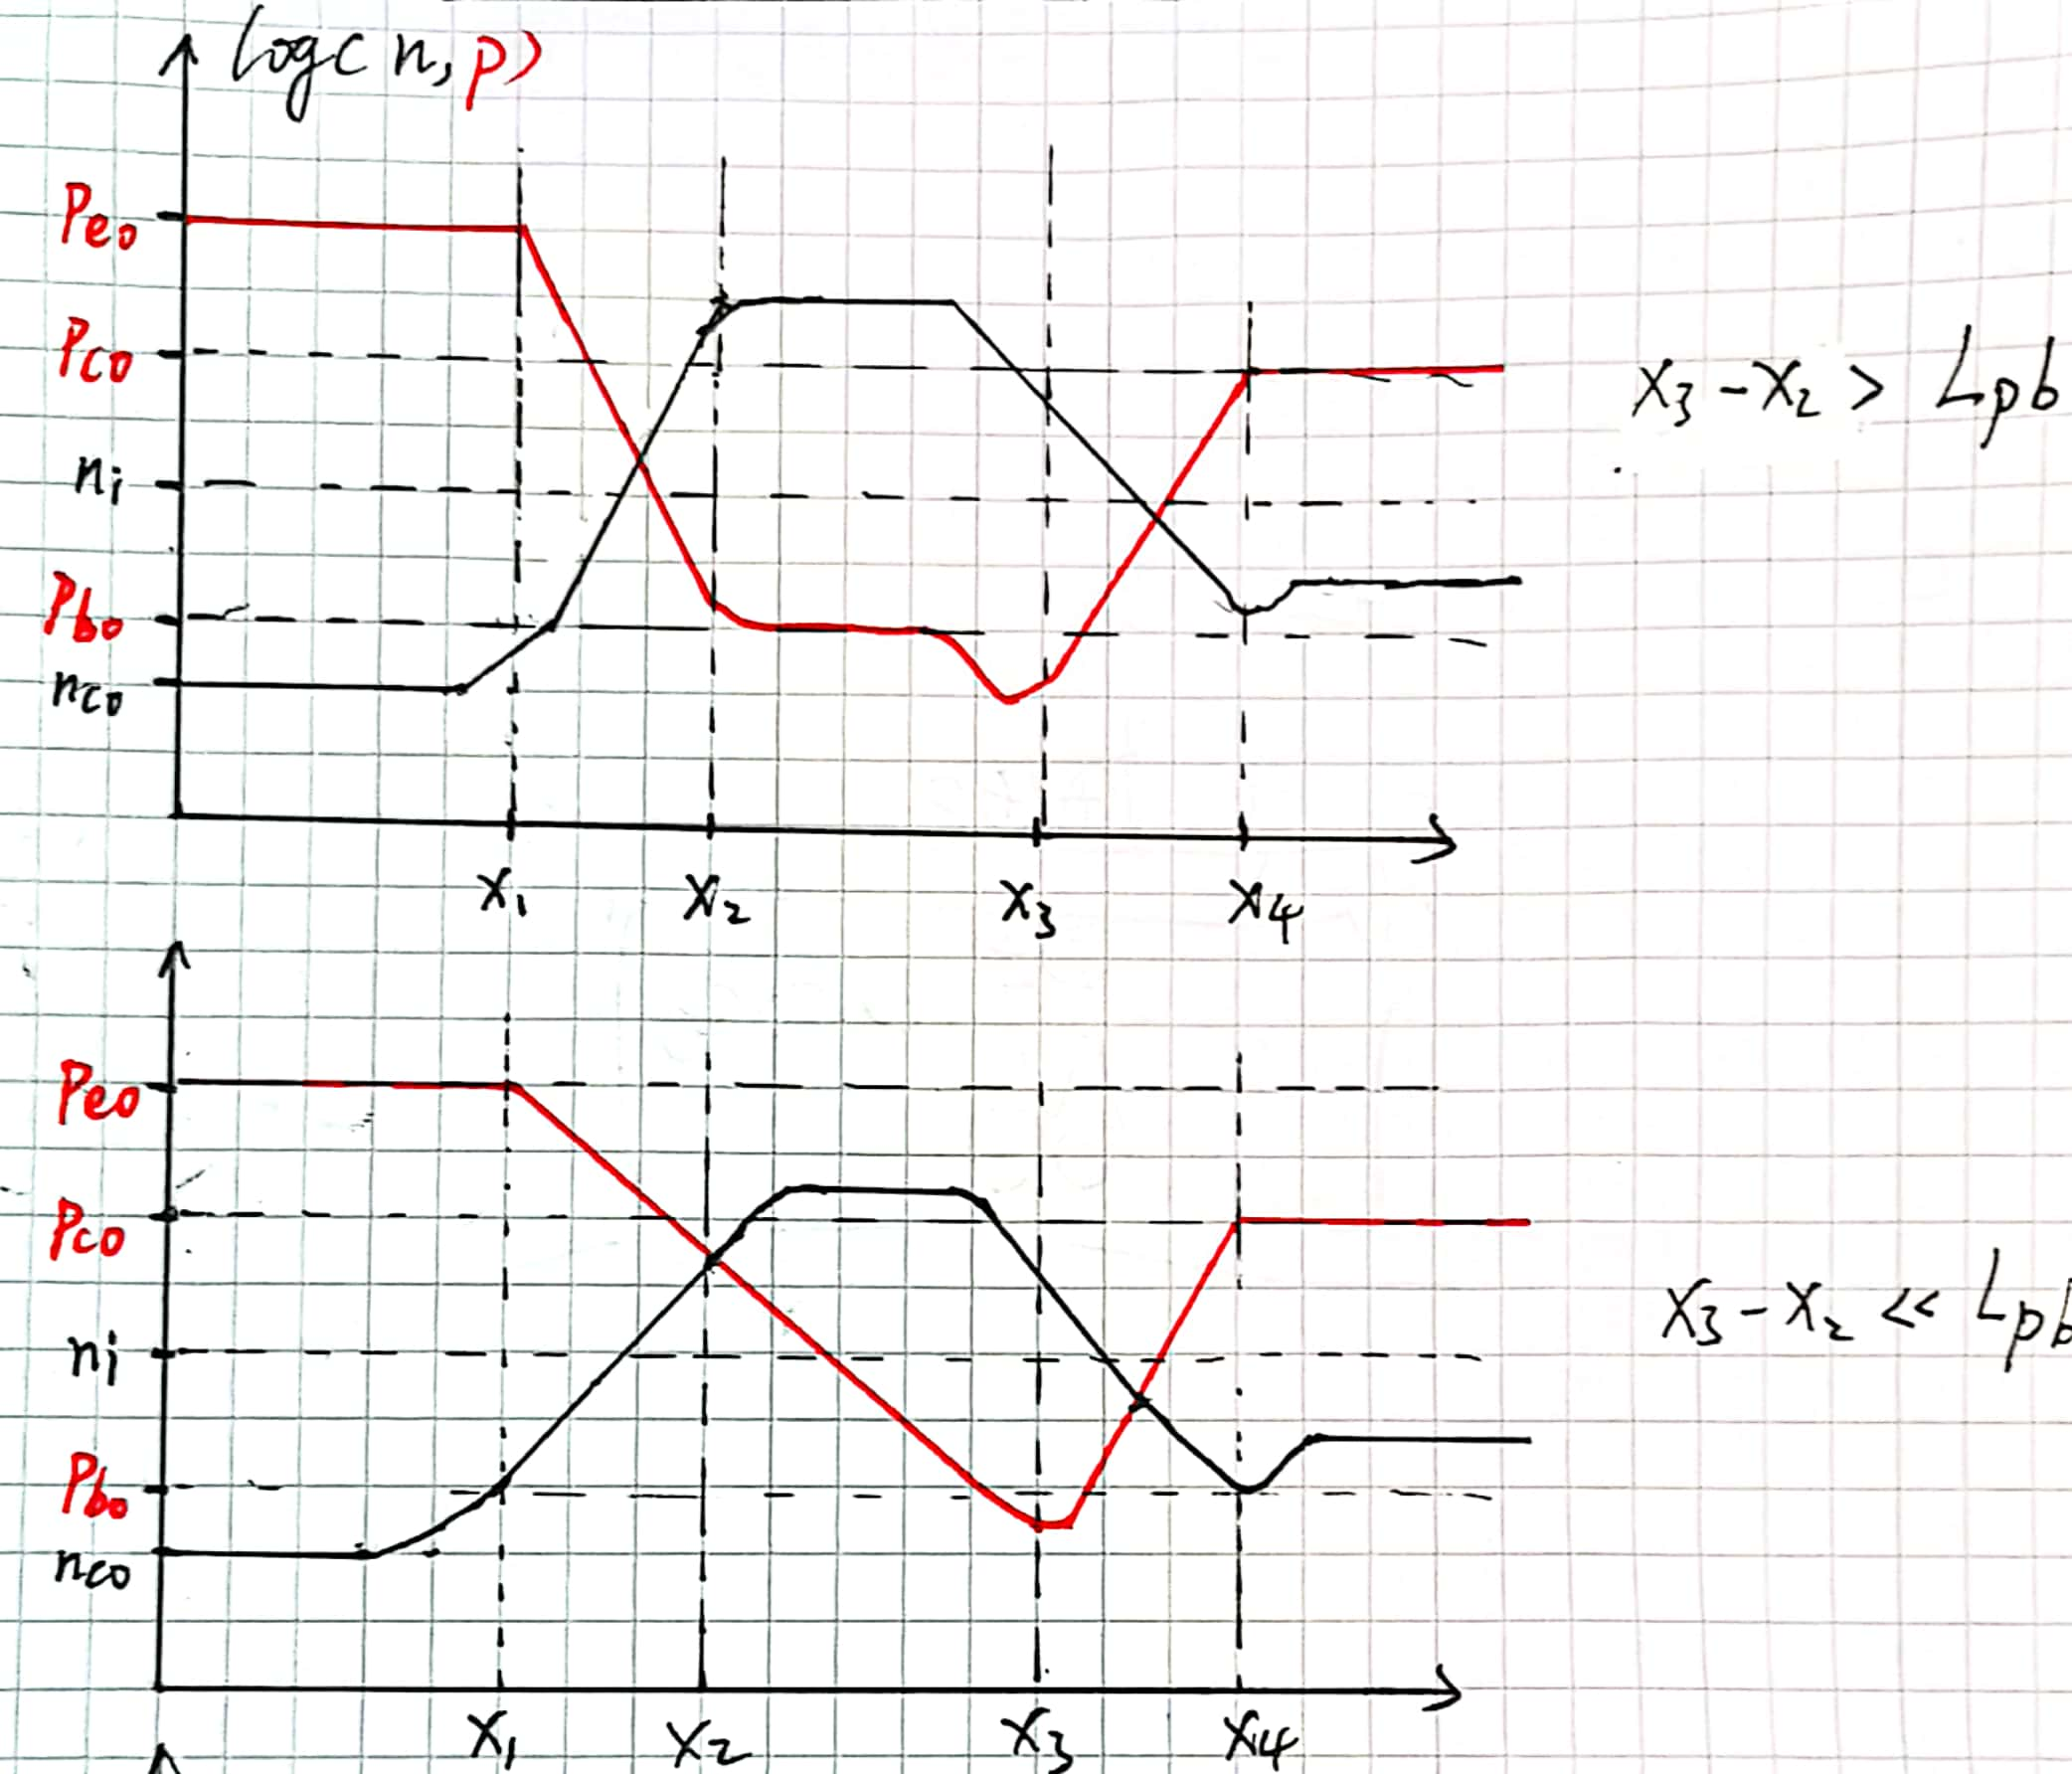 log(n,p)
Peo
Pco
ni
Pbo
nco
x1 x2 x3 x4
x3-x2 > Lpb
Peo
Pco
ni
Pbo
nco
x1 x2 x3 x4
x3-x2 << Lpb